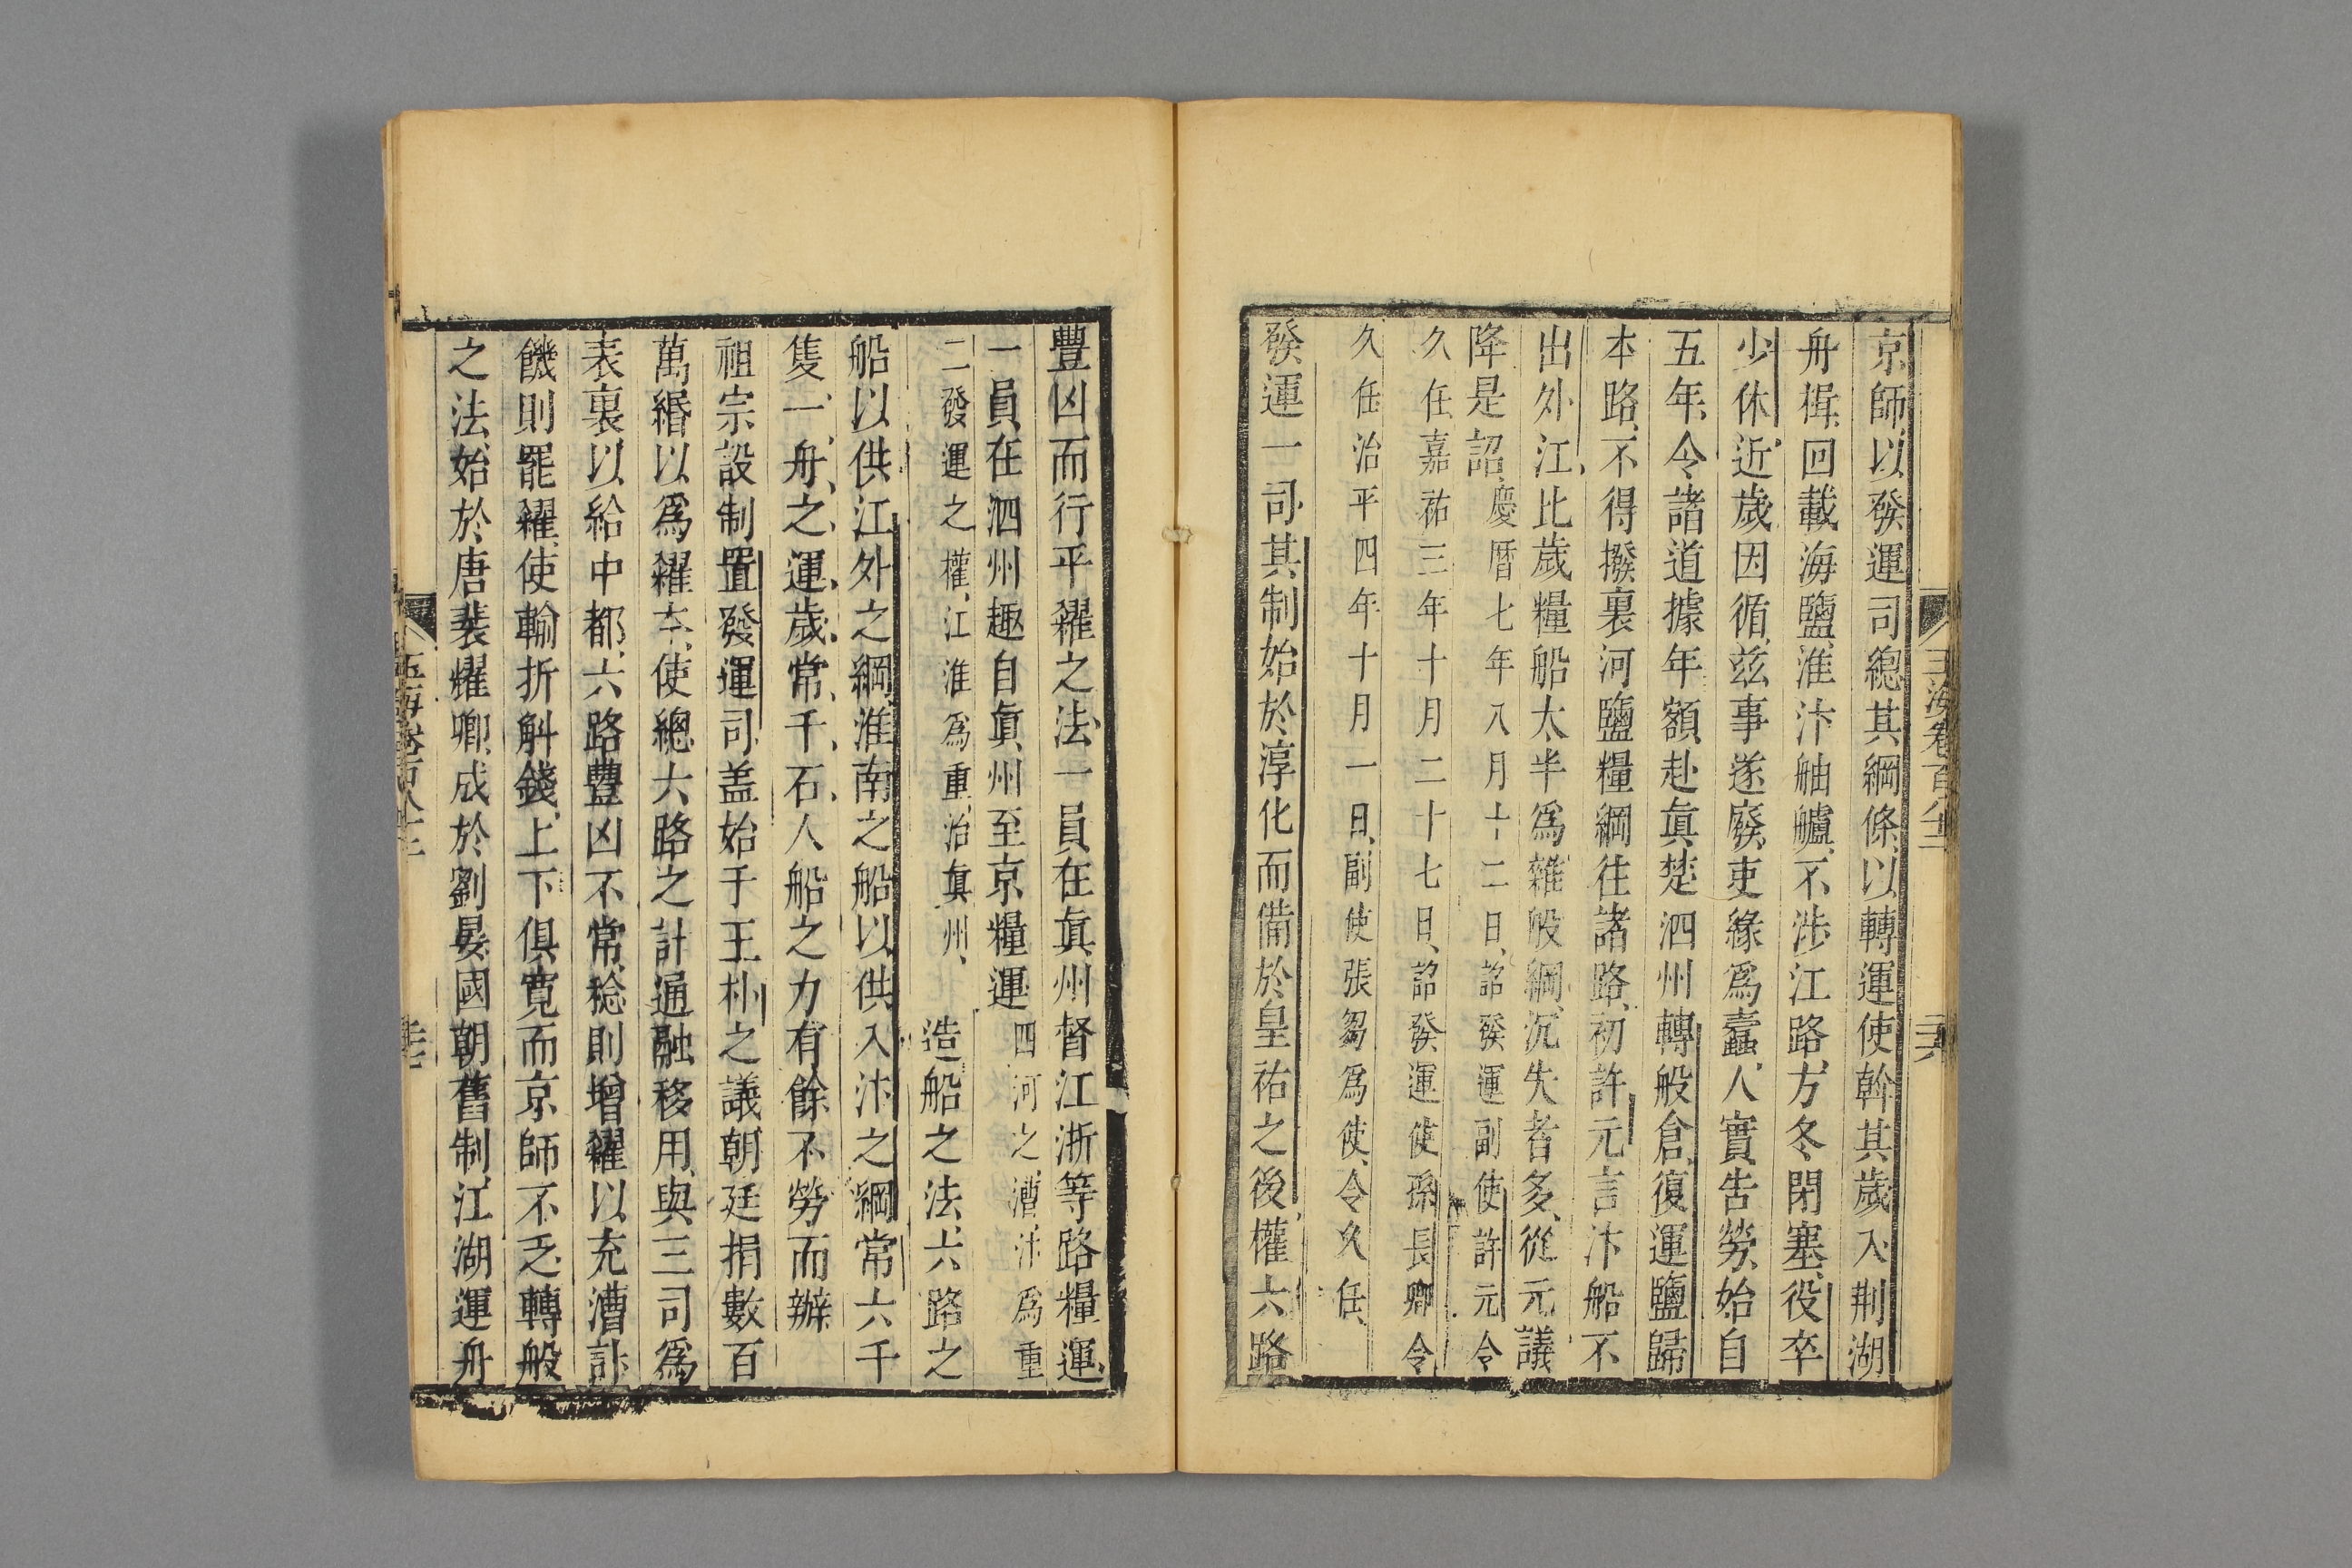 玉海卷一百八十二
二十六
京師以發運司總其綱條以轉運使幹其歲入荆湖
舟楫回載海鹽淮汴舳艫不涉江路方冬閉塞役卒
少休近歲因循茲事遂廢吏緣爲蠹人實告勞始自
五年令諸道據年額赴眞楚泗州轉般倉復運鹽歸
本路不得撥裏河鹽糧綱往諸路初許元言汴船不
出外江比歲糧船太半爲雜般綱沉失者多從元議
降是詔慶曆七年八月十二日詔發運副使許元令
久任嘉祐三年十月二十七日詔發運使孫長卿令
久任治平四年十月一日副使張芻爲使令久任
發運一司其制始於淳化而備於皇祐之後權六路
豐凶而行平糴之法一員在眞州督江浙等路糧運
一員在泗州趣自眞州至京糧運四河之漕汴爲重
二發運之權江淮爲重治眞州造船之法六路之
船以供江外之綱淮南之船以供入汴之綱常六千
隻一舟之運歲常千石人船之力有餘不勞而辦
祖宗設制置發運司盖始于王朴之議朝廷捐數百
萬緡以爲糴本使總六路之計通融移用與三司爲
表裏以給中都六路豐凶不常稔則增糴以充漕計
饑則罷糴使輸折斛錢上下俱寬而京師不乏轉般
之法始於唐裴耀卿成於劉晏國朝舊制江湖運舟
玉海卷一百八十二
二十七